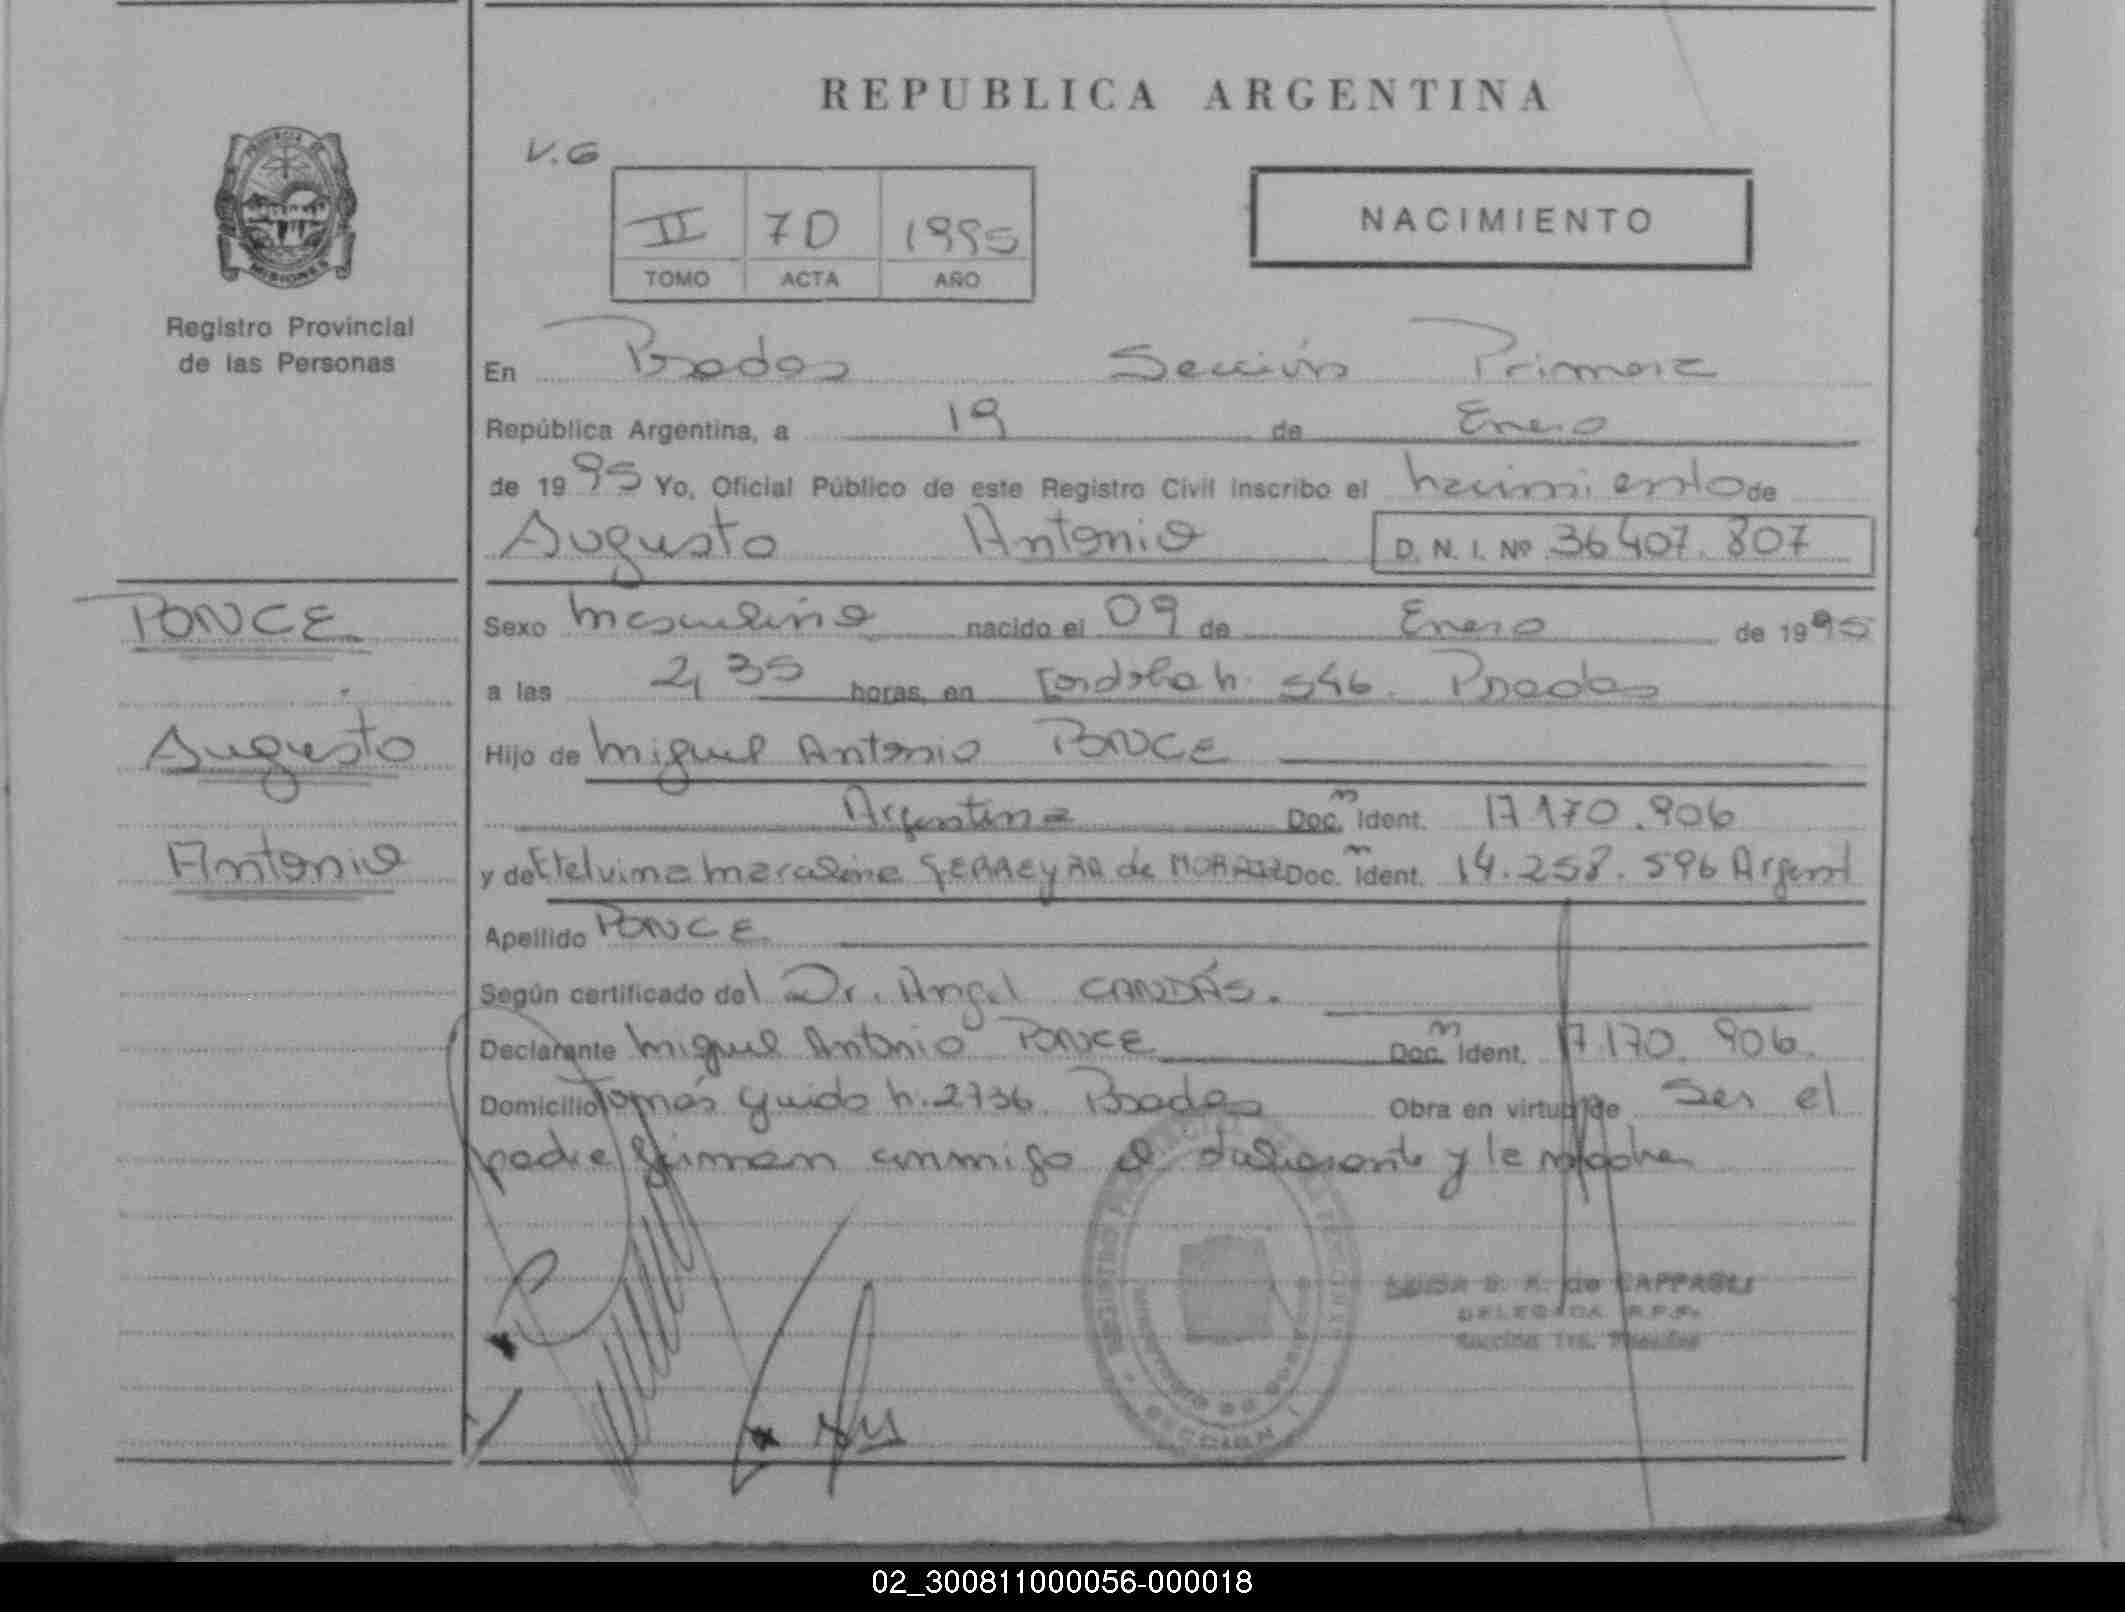 REPUBLICA ARGENTINA
V.G
II 70 1995
TOMO ACTA AÑO
NACIMIENTO
PROVINCIA DE
MISIONES
Registro Provincial
de las Personas
En Psadas Sección Primera
República Argentina, a 19 de Enero
de 1995 Yo, Oficial Público de este Registro Civil inscribo el nacimiento de
Augusto Antonio D. N. I. Nº 36407.807
PONCE
Augusto
Antonio
Sexo masculino nacido el 09 de Enero de 1995
a las 2,35 horas, en Cordoba n. 546. Psadas
Hijo de Miguel Antonio PONCE
Argentina Doc. m Ident. 17170.906
y de Etelvina Marcelina FERREYRA de Doc. m Ident. 14.258.596 Argent
Apellido PONCE
Según certificado del Dr. Angel CANDÁS.
Declarante Miguel Antonio PONCE Doc. m Ident. 17.170.906.
Domicilio Tomás Guido n. 2736 Psadas Obra en virtud de Ser el
padre firman conmigo el declarante y la madre
de CAPPAGLI
DELEGADA R.P.P.
Sección 1ra. Posadas
SECCION 1
02_300811000056-000018